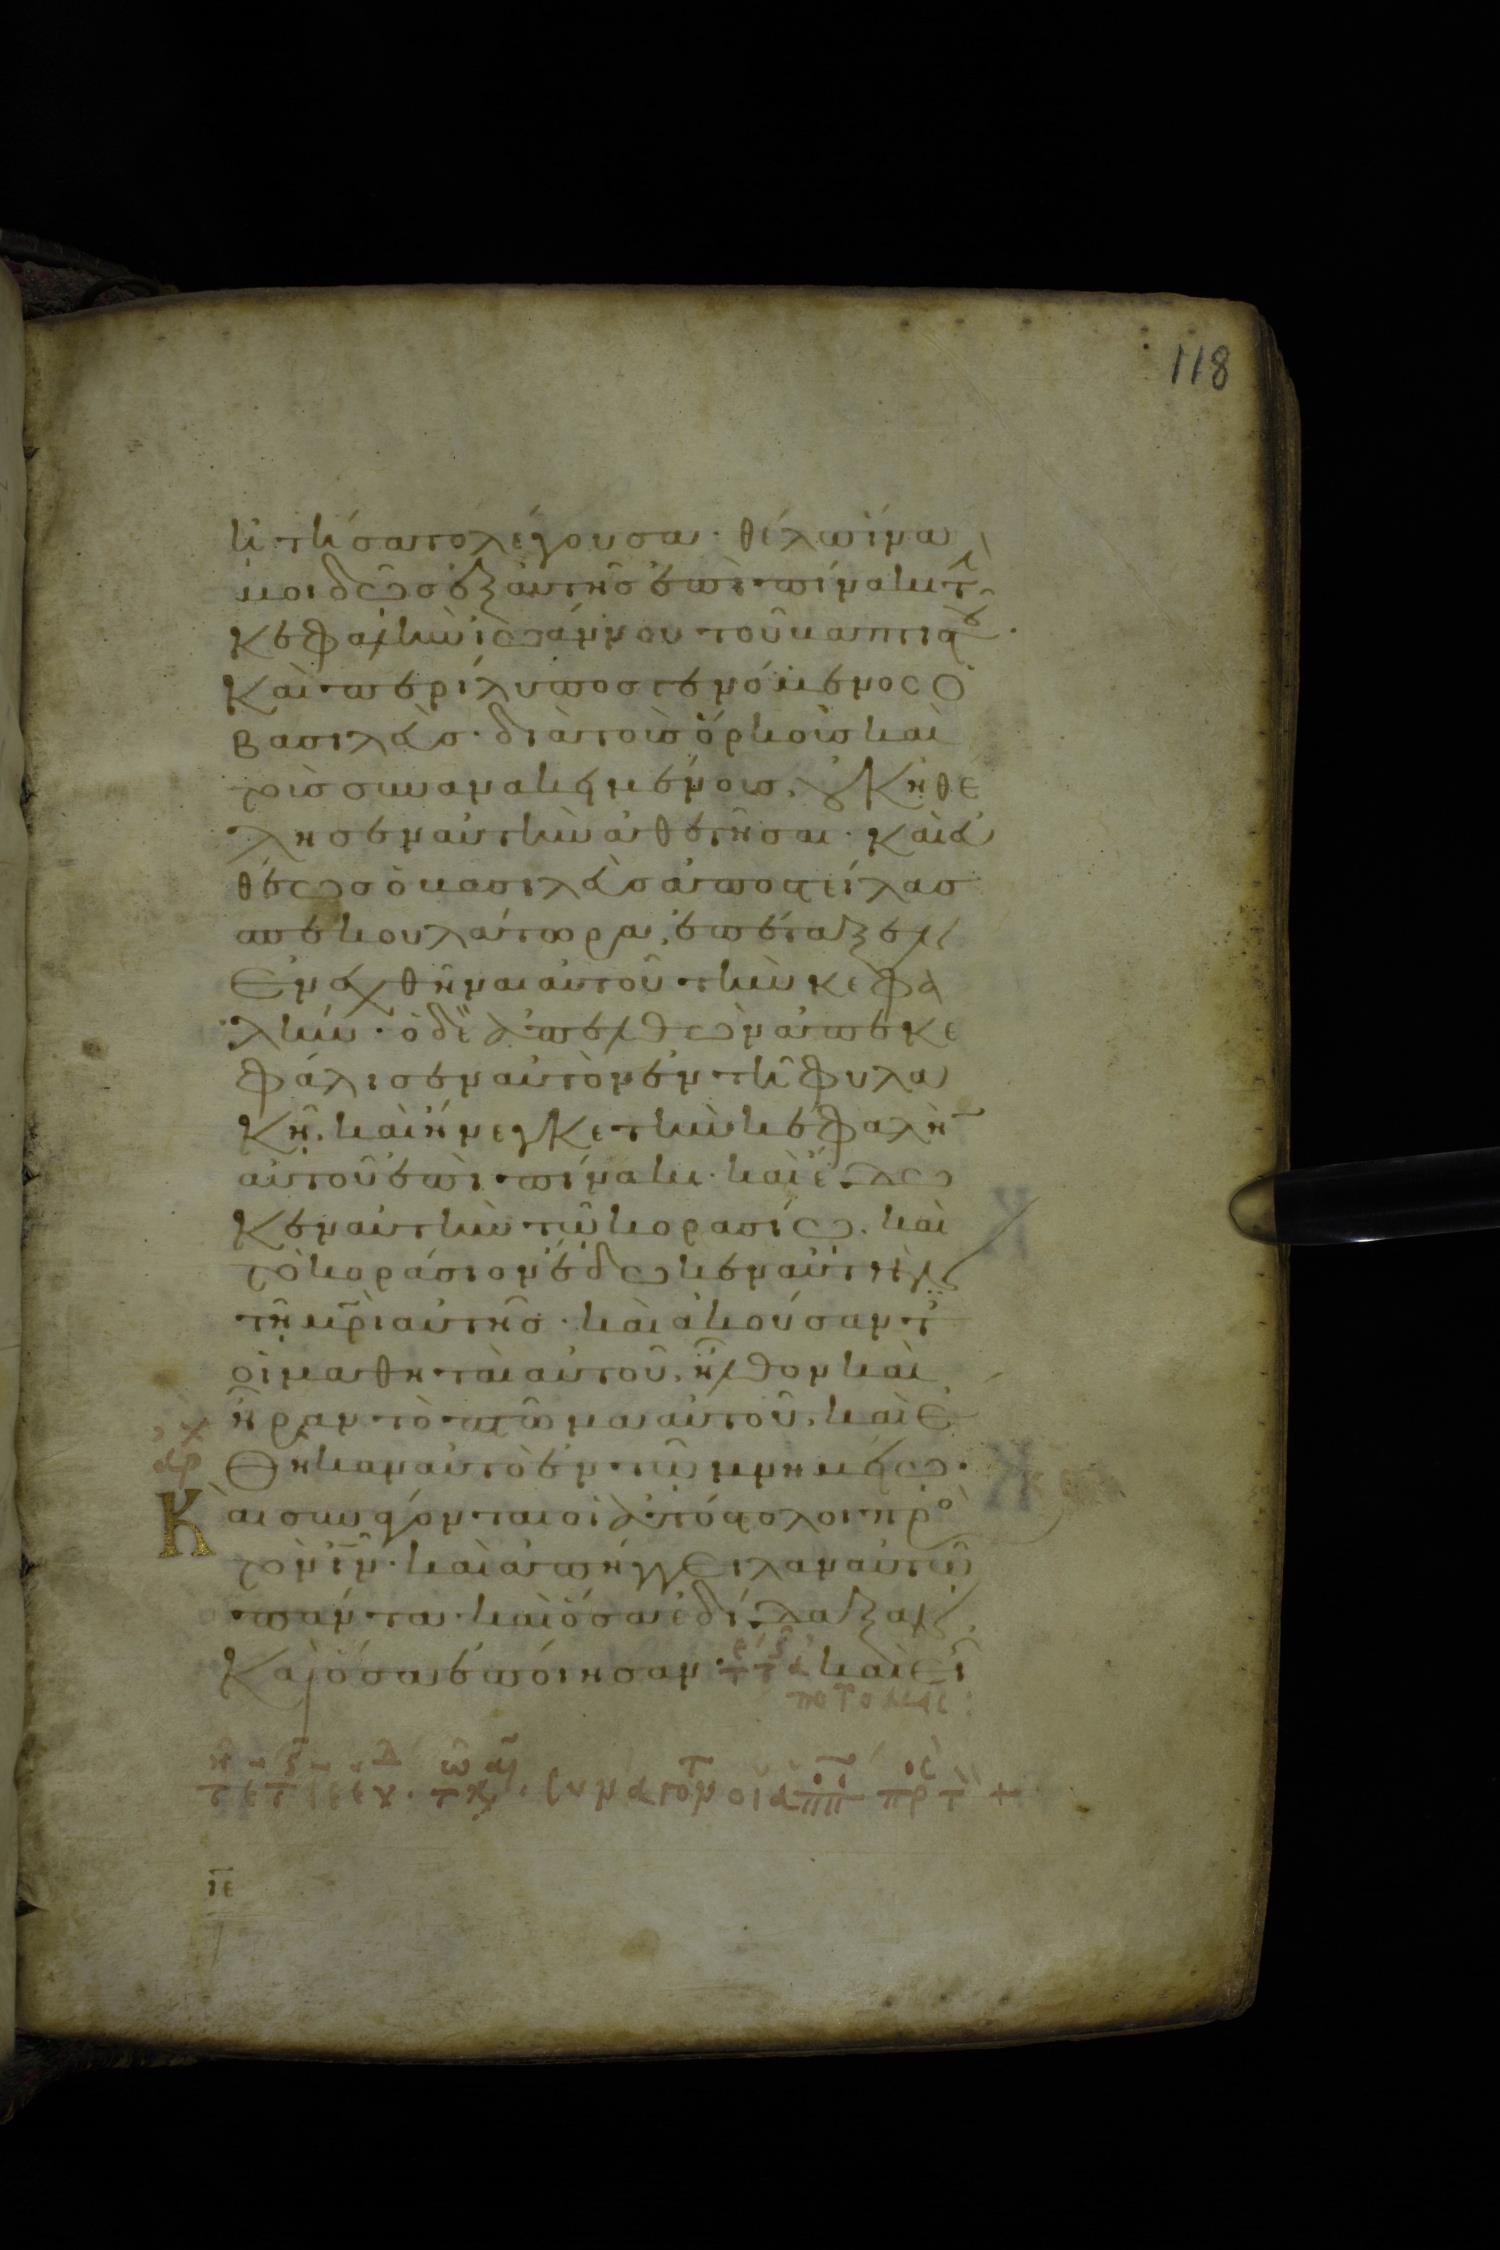 118
ἠτήσατο λέγουσα· θέλω ἵνα
μοι δῶσ ἐξαυτῆσ ἐπὶ πίνακι τ̀
κεφαλὴν ἰωάννου τοῦ βαπτιστοῦ·
Καὶ περίλυποσ γενόμενοσ ὁ
βασιλεὺσ· διὰ τοὺσ ὅρκουσ καὶ
τοὺσ συνανακειμένουσ, οὐκ ἠθέ
λησεν αὐτὴν ἀθετῆσαι· καὶ εὐ
θέωσ ὁ βασιλεὺσ ἀποστείλασ
σπεκουλάτωρα, ἐπέταξεν
ἐνεχθῆναι αὐτοῦ τὴν κεφα
λήν· ὁ δὲ ἀπελθὼν ἀπεκε
φάλισεν αὐτὸν ἐν τῆ φυλα
κῆ, καὶ ἤνεγκε τὴν κεφαλὴν
αὐτοῦ ἐπὶ πίνακι· καὶ ἔδω
κεν αὐτὴν τῶ κορασίω, καὶ
τὸ κοράσιον ἔδωκεν αὐτὴν
τῆ μρ̅ὶ αὐτῆσ· καὶ ἀκούσαντ
οἱ μαθηταὶ αὐτοῦ, ἦλθον καὶ
ἦραν τὸ πτῶμα αὐτοῦ, καὶ ἔ
θηκαν αὐτὸ ἐν τῶ μνημείω·
ἀρχ
Και συνάγονται οἱ ἀπόστολοι πρὸ
τὸν ι̅ν̅· καὶ ἀπήγγειλαν αὐτῶ
πάντα· καὶ ὅσα ἐδίδαξαν
Καὶ ὅσα ἐποίησαν· καὶ εἶ
ιε